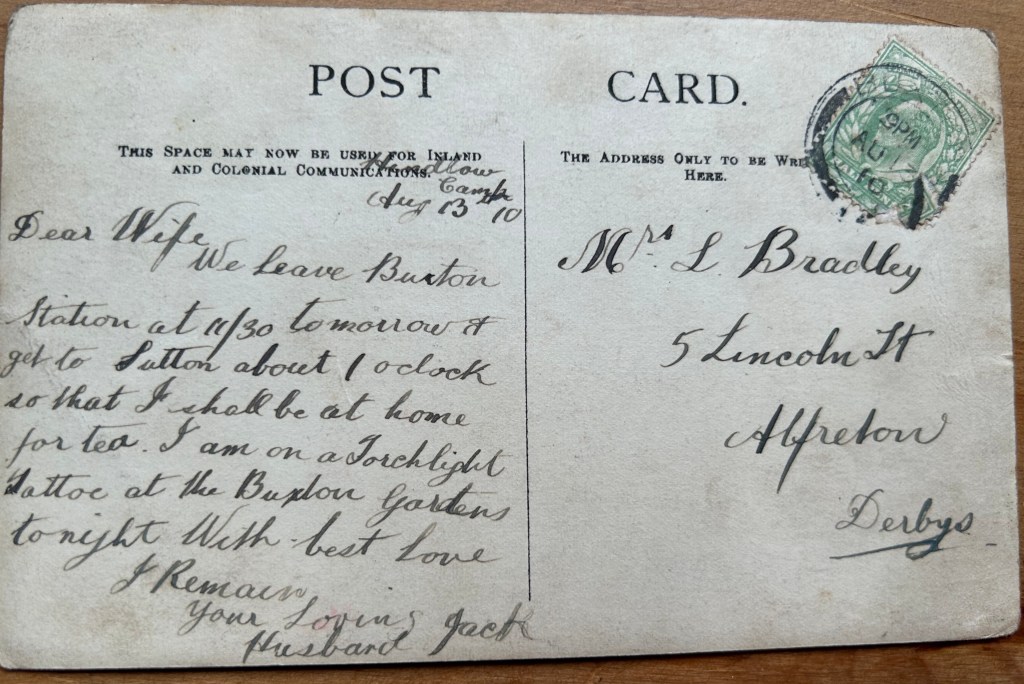 POST CARD.
THIS SPACE MAY NOW BE USED FOR INLAND
AND COLONIAL COMMUNICATIONS.
THE ADDRESS ONLY TO BE WRI
HERE.
Hindlow
Camp
Aug 13th 10
Dear Wife
We Leave Buxton
Station at 11/30 tomorrow &
get to Sutton about 1 oclock
so that I shall be at home
for tea. I am on a Torchlight
Tattoe at the Buxton Gardens
tonight With best Love
I Remain
Your Loving
Husband Jack
Mrs L Bradley
5 Lincoln St
Alfreton
Derbys
9PM
AU
10